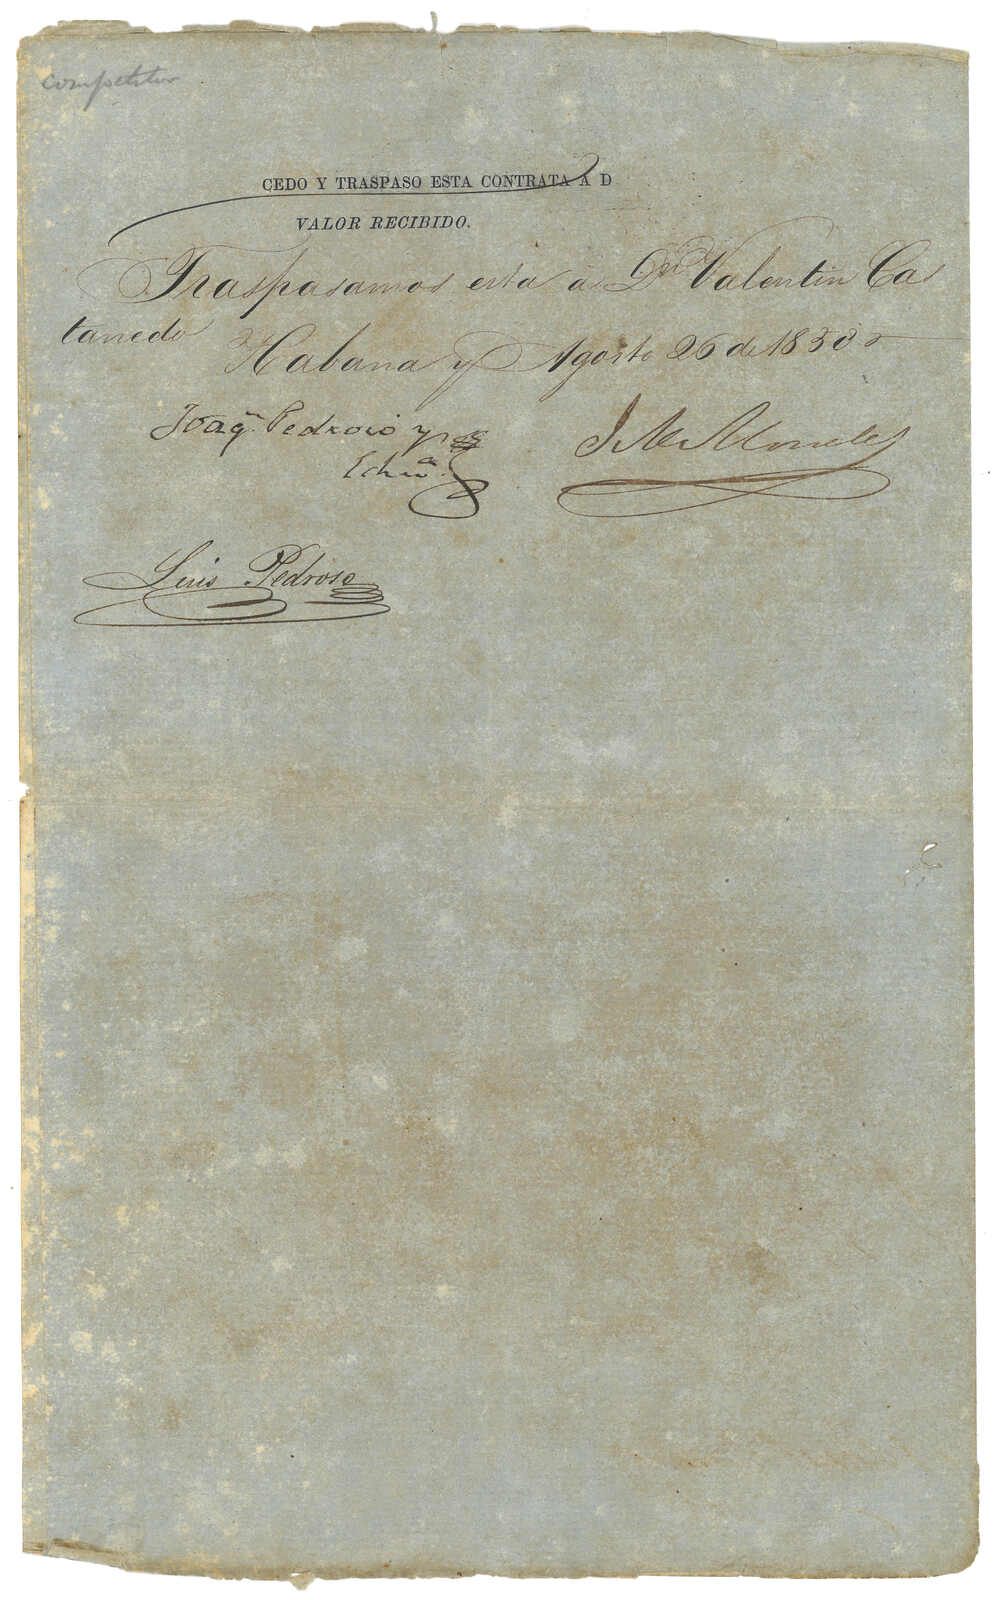 competitor
CEDO Y TRASPASO ESTA CONTRATA A D
VALOR RECIBIDO.
Traspasamos esta a Dn Valentin Cas
tanedo
Habana y Agosto 26 de 1858
Joaqn. Pedroso y
Echa.
J M Morales
Luis Pedroso